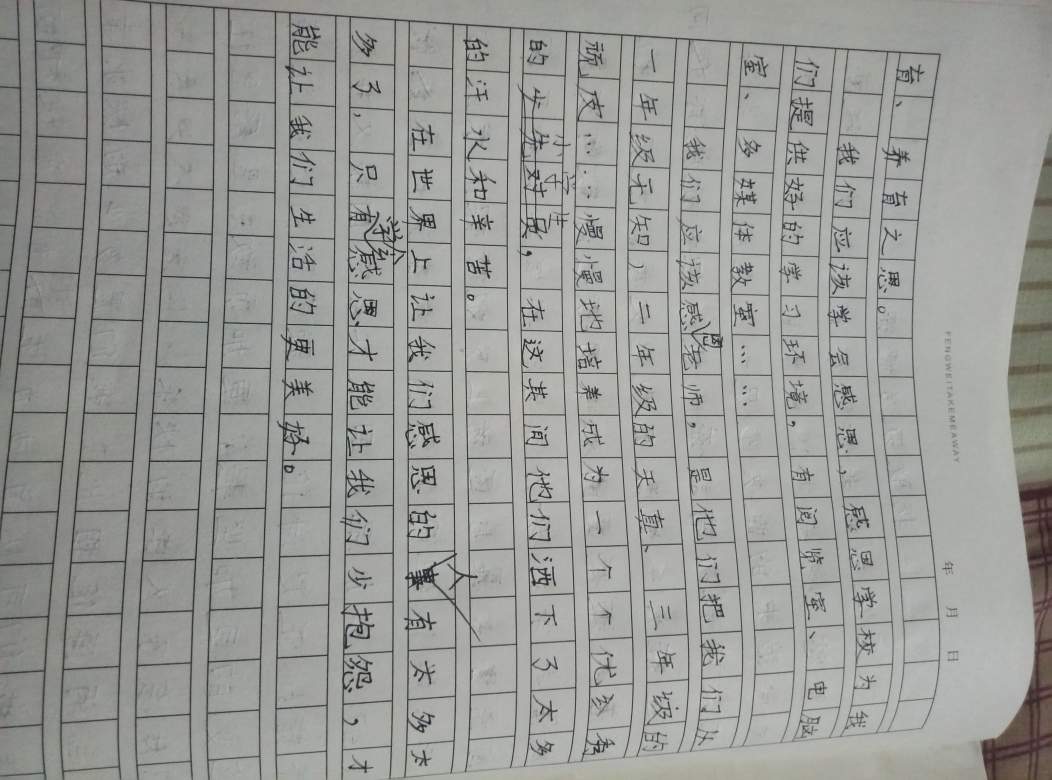 FENGWEITAKEMEAWAY
年 月 日
育、养育之恩。
我们应该学会感恩,感恩学校为我
们提供好的学习环境,有阅览室、电脑
室、多媒体教室……
我们应该感恩老师,是他们把我们从
一年级无知,二年级的天真、三年级的
顽皮……慢慢地培养成为一个个优秀
的小学生,在这其间他们洒下了太多
的汗水和辛苦。
在世界上让我们感恩的人有太多太
多了,只有学会感恩才能让我们少抱怨,才
能让我们生活的更美好。